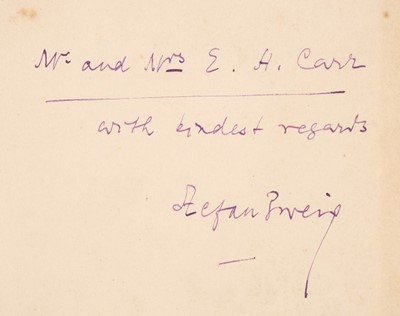 Mr and Mrs E. H. Carr
with kindest regards
Stefan Zweig